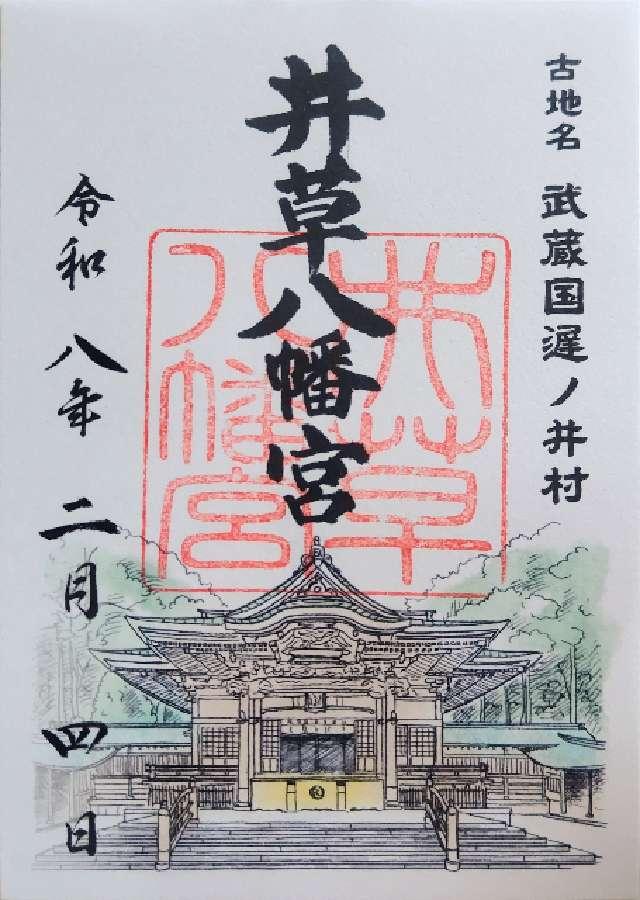 古地名 武蔵国遅ノ井村
井草八幡宮
井草
八幡宮
令和 八年 二月 四日